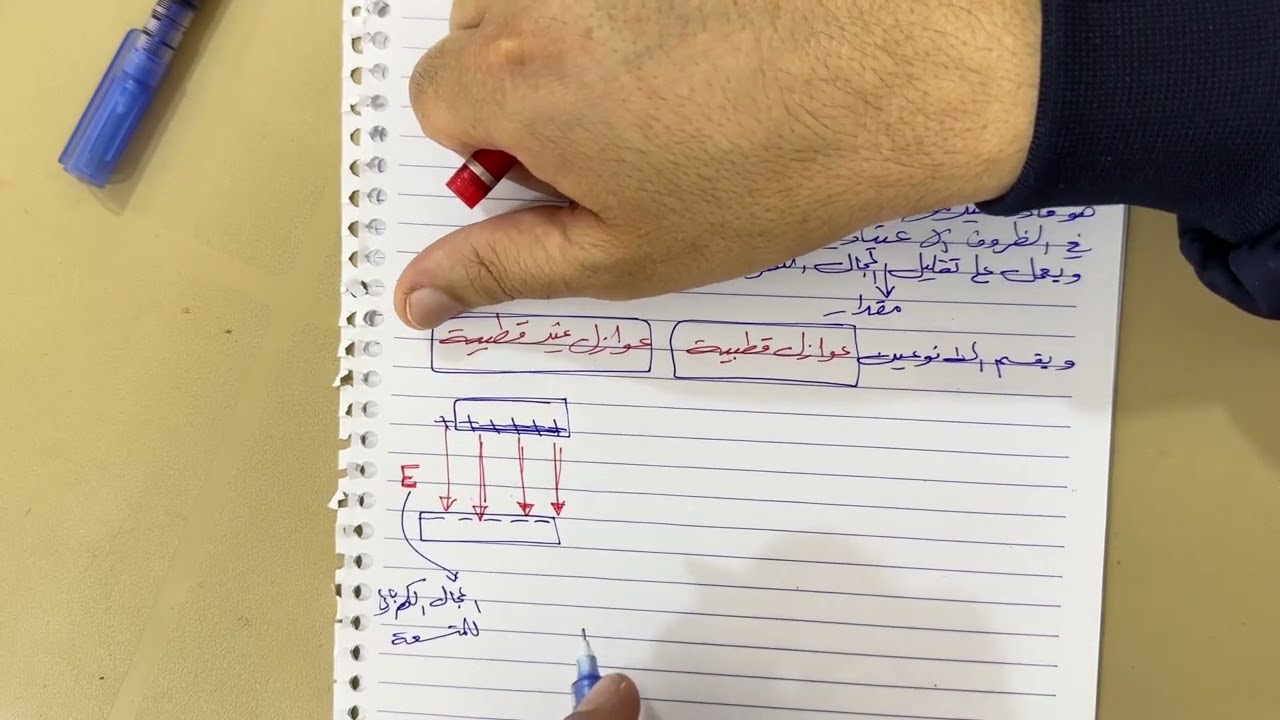 في الظروف الاعتيادية
ويعمل على تقليل المجال
مقدار
ويقسم الى نوعين عوازل قطبية عوازل غير قطبية
E
المجال الكهربائي
للمتسعة